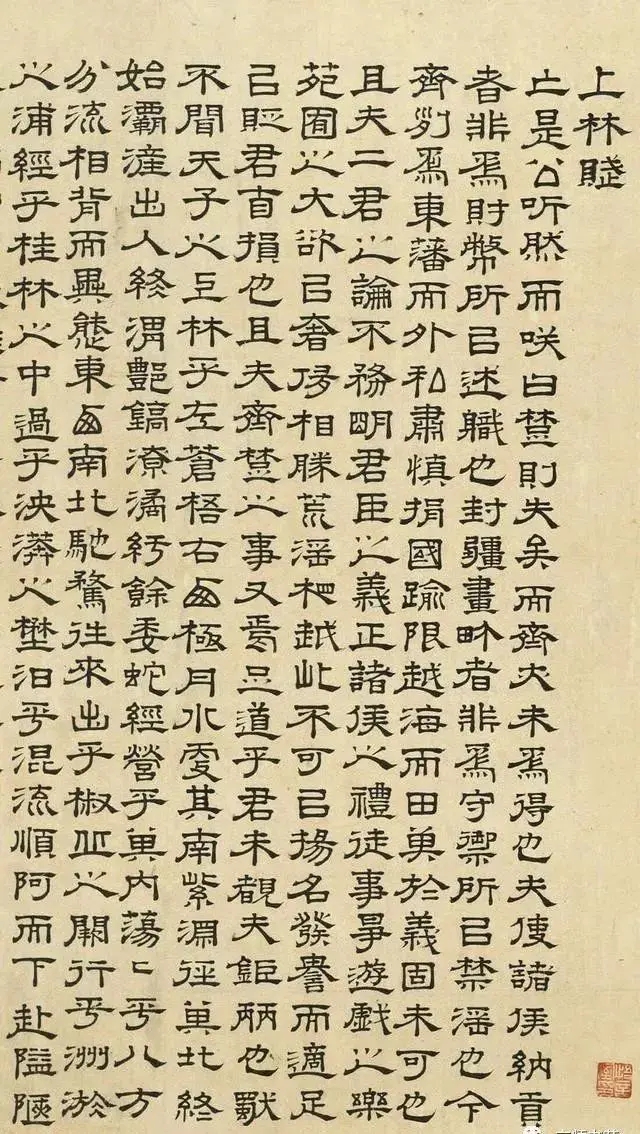 上林賦
亡是公听然而咲曰楚則失矣而齊亦未為得也夫使諸侯納貢
者非為財幣所以述職也封疆畫畍者非為守禦所以禁淫也今
齊列為東藩而外私肅慎捐國踰限越海而田其於義固未可也
且夫二君之論不務明君臣之義正諸侯之禮徒事爭遊戲之樂
苑囿之大欲以奢侈相勝荒淫相越此不可以揚名發譽而適足
以貶君自損也且夫齊楚之事又焉足道乎君未覩夫鉅麗也獨
不聞天子之上林乎左蒼梧右西極丹水更其南紫淵徑其北終
始灞滻出入終渭酆鎬潦潏紆餘委蛇經營乎其內蕩〻乎八方
分流相背而異態東西南北馳騖往來出乎椒丘之闕行乎洲淤
之浦經乎桂林之中過乎泱漭之壄汨乎混流順阿而下赴隘陿